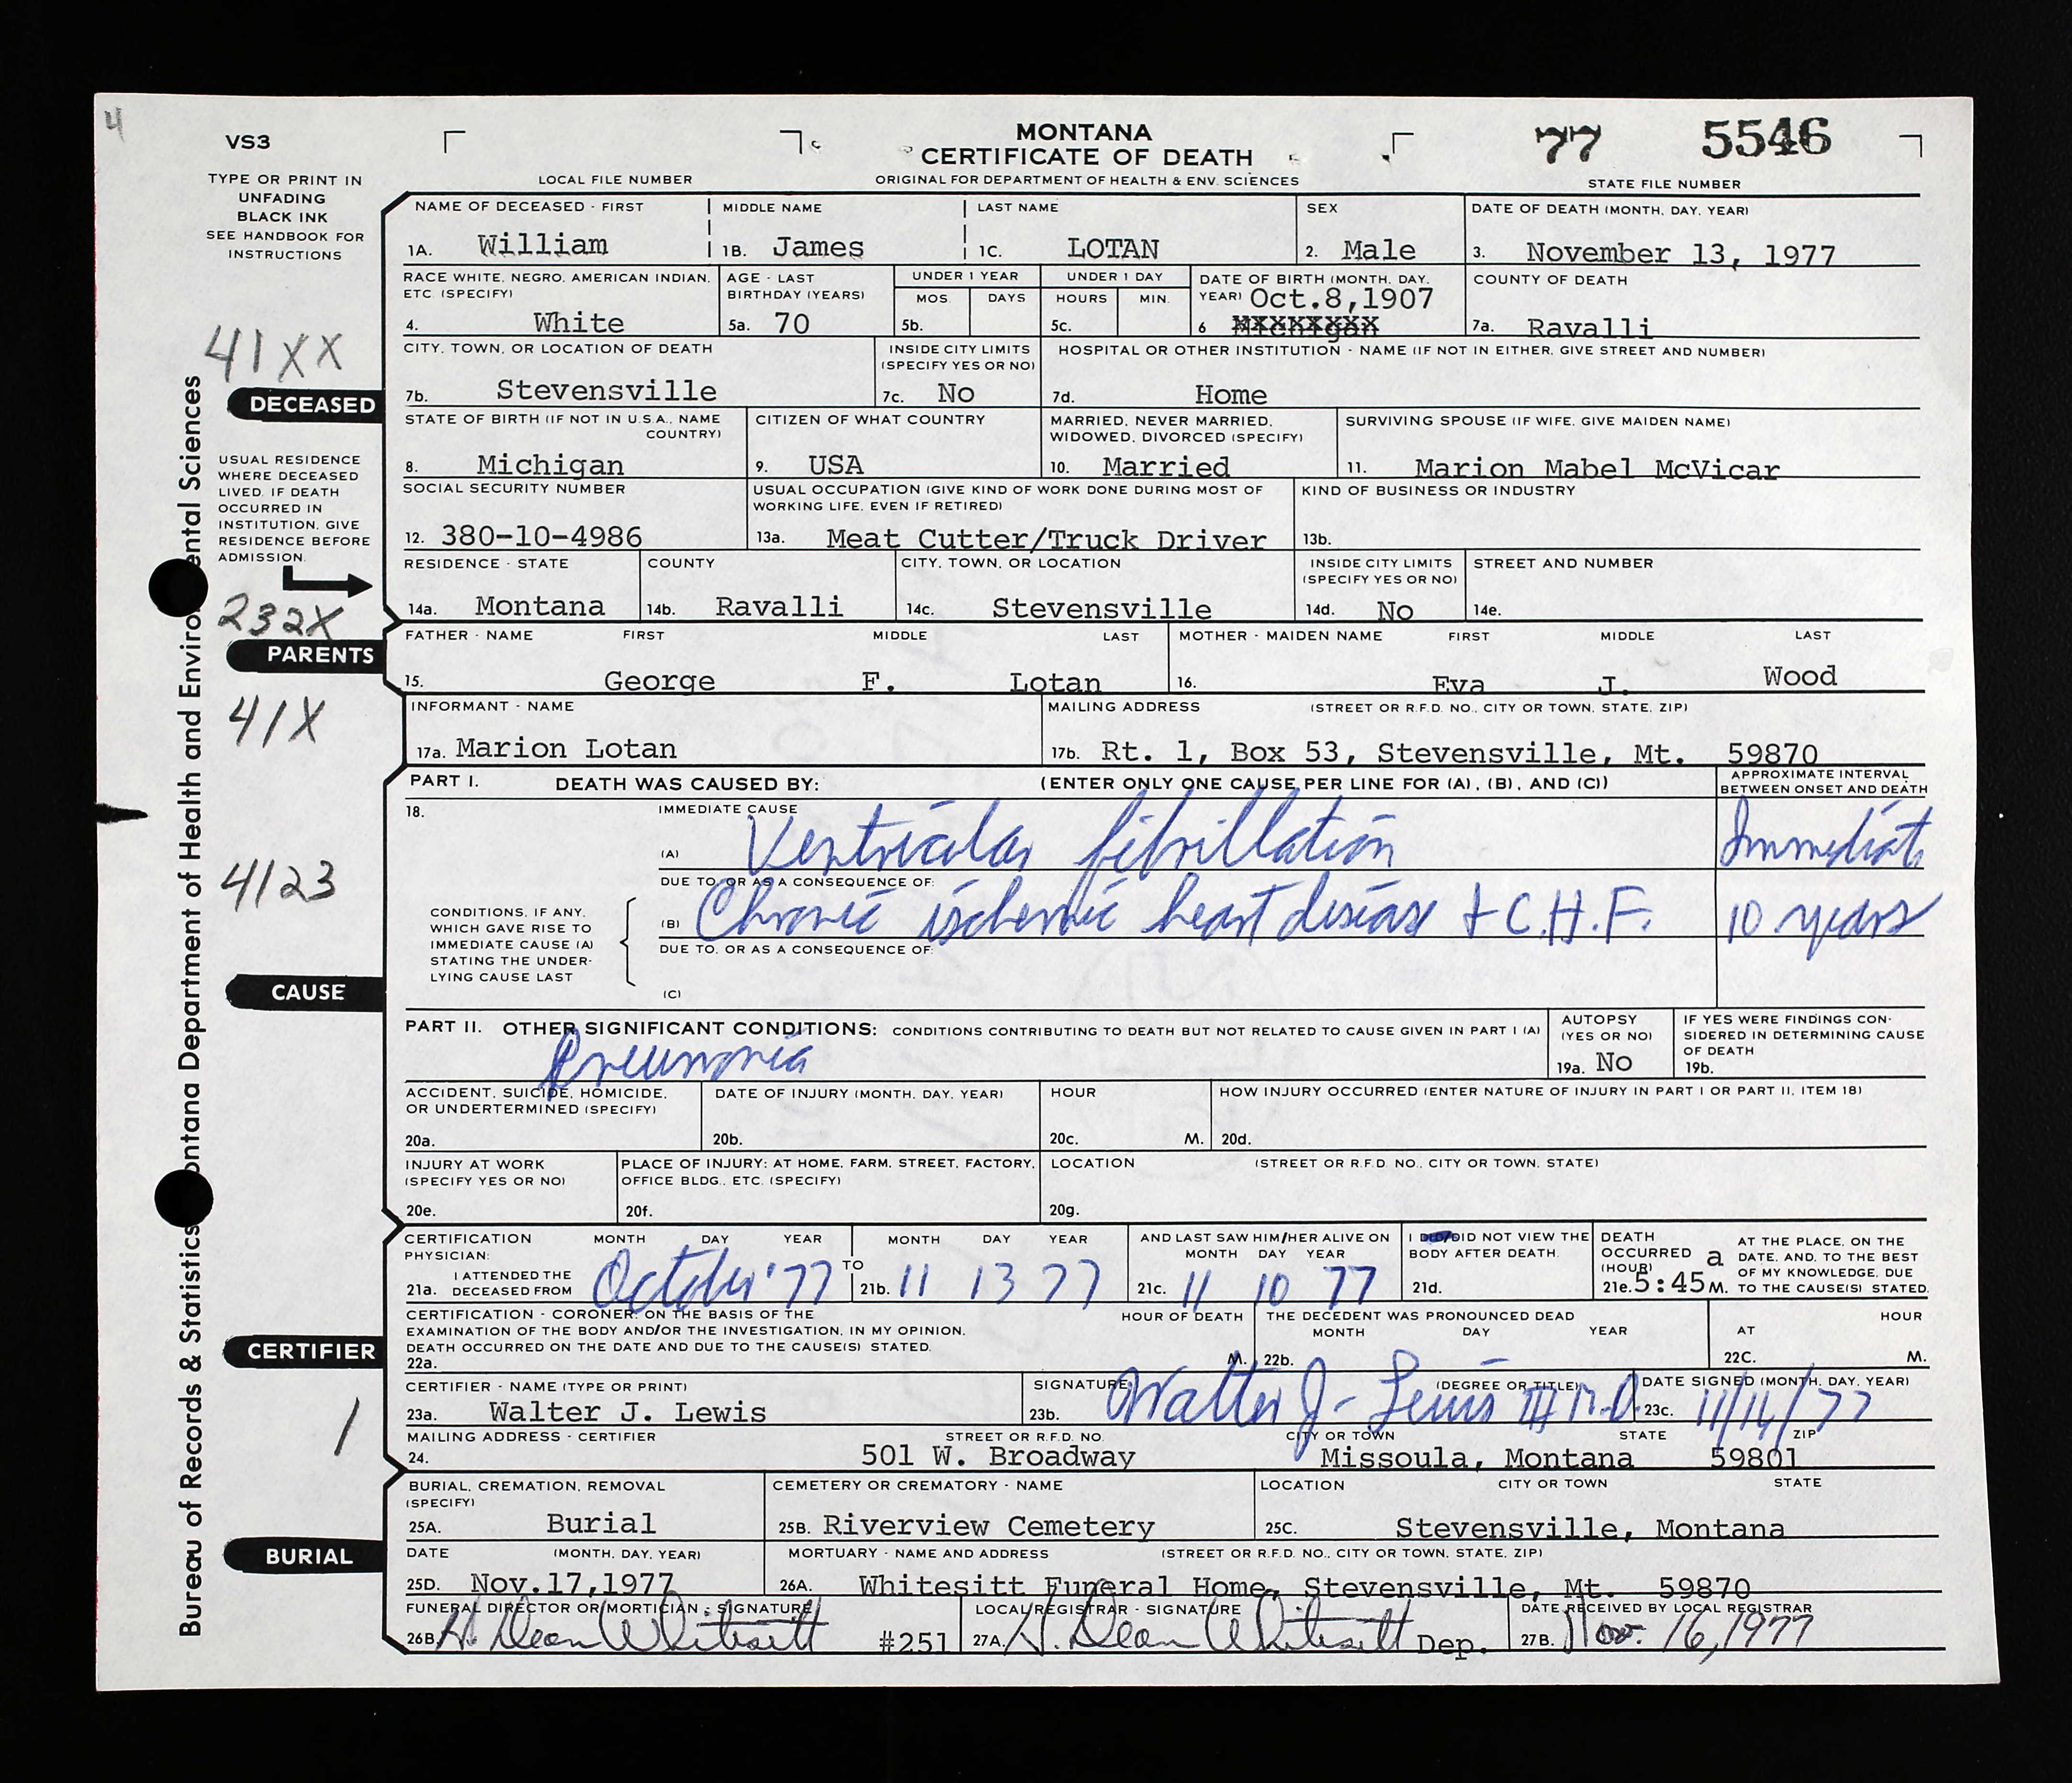 4
VS3
MONTANA
CERTIFICATE OF DEATH
77 5546
LOCAL FILE NUMBER
ORIGINAL FOR DEPARTMENT OF HEALTH & ENV. SCIENCES
STATE FILE NUMBER
TYPE OR PRINT IN
UNFADING
BLACK INK
SEE HANDBOOK FOR
INSTRUCTIONS
NAME OF DECEASED - FIRST MIDDLE NAME LAST NAME SEX DATE OF DEATH (MONTH, DAY, YEAR)
1A. William 1B. James 1C. LOTAN 2. Male 3. November 13, 1977
RACE WHITE, NEGRO, AMERICAN INDIAN, ETC. (SPECIFY) AGE - LAST BIRTHDAY (YEARS) UNDER 1 YEAR MOS. DAYS UNDER 1 DAY HOURS MIN. DATE OF BIRTH (MONTH, DAY, YEAR) COUNTY OF DEATH
4. White 5a. 70 5b. 5c. 6 Oct.8,1907 Michigan 7a. Ravalli
41XX
CITY, TOWN, OR LOCATION OF DEATH INSIDE CITY LIMITS (SPECIFY YES OR NO) HOSPITAL OR OTHER INSTITUTION - NAME (IF NOT IN EITHER, GIVE STREET AND NUMBER)
7b. Stevensville 7c. No 7d. Home
DECEASED
STATE OF BIRTH (IF NOT IN U.S.A., NAME COUNTRY) CITIZEN OF WHAT COUNTRY MARRIED, NEVER MARRIED, WIDOWED, DIVORCED (SPECIFY) SURVIVING SPOUSE (IF WIFE, GIVE MAIDEN NAME)
8. Michigan 9. USA 10. Married 11. Marion Mabel McVicar
USUAL RESIDENCE
WHERE DECEASED
LIVED. IF DEATH
OCCURRED IN
INSTITUTION, GIVE
RESIDENCE BEFORE
ADMISSION.
SOCIAL SECURITY NUMBER USUAL OCCUPATION (GIVE KIND OF WORK DONE DURING MOST OF WORKING LIFE, EVEN IF RETIRED) KIND OF BUSINESS OR INDUSTRY
12. 380-10-4986 13a. Meat Cutter/Truck Driver 13b.
RESIDENCE - STATE COUNTY CITY, TOWN, OR LOCATION INSIDE CITY LIMITS (SPECIFY YES OR NO) STREET AND NUMBER
14a. Montana 14b. Ravalli 14c. Stevensville 14d. No 14e.
232X
PARENTS
FATHER - NAME FIRST MIDDLE LAST MOTHER - MAIDEN NAME FIRST MIDDLE LAST
15. George F. Lotan 16. Eva J. Wood
41X
INFORMANT - NAME MAILING ADDRESS (STREET OR R.F.D. NO., CITY OR TOWN, STATE, ZIP)
17a. Marion Lotan 17b. Rt. 1, Box 53, Stevensville, Mt. 59870
PART I. DEATH WAS CAUSED BY: (ENTER ONLY ONE CAUSE PER LINE FOR (A), (B), AND (C)) APPROXIMATE INTERVAL BETWEEN ONSET AND DEATH
18. IMMEDIATE CAUSE
(A) Ventricular fibrillation Immediate
4123
DUE TO, OR AS A CONSEQUENCE OF:
(B) Chronic ischemic heart disease + C.H.F. 10 years
DUE TO, OR AS A CONSEQUENCE OF:
(C)
CONDITIONS, IF ANY,
WHICH GAVE RISE TO
IMMEDIATE CAUSE (A)
STATING THE UNDER-
LYING CAUSE LAST
CAUSE
PART II. OTHER SIGNIFICANT CONDITIONS: CONDITIONS CONTRIBUTING TO DEATH BUT NOT RELATED TO CAUSE GIVEN IN PART I (A) AUTOPSY (YES OR NO) IF YES WERE FINDINGS CONSIDERED IN DETERMINING CAUSE OF DEATH
Pneumonia 19a. No 19b.
ACCIDENT, SUICIDE, HOMICIDE, OR UNDERTERMINED (SPECIFY) DATE OF INJURY (MONTH, DAY, YEAR) HOUR HOW INJURY OCCURRED (ENTER NATURE OF INJURY IN PART I OR PART II, ITEM 18)
20a. 20b. 20c. M. 20d.
INJURY AT WORK (SPECIFY YES OR NO) PLACE OF INJURY: AT HOME, FARM, STREET, FACTORY, OFFICE BLDG., ETC. (SPECIFY) LOCATION (STREET OR R.F.D. NO., CITY OR TOWN, STATE)
20e. 20f. 20g.
CERTIFICATION PHYSICIAN: MONTH DAY YEAR MONTH DAY YEAR AND LAST SAW HIM/HER ALIVE ON MONTH DAY YEAR I DID/DID NOT VIEW THE BODY AFTER DEATH. DEATH OCCURRED (HOUR) AT THE PLACE, ON THE DATE, AND, TO THE BEST OF MY KNOWLEDGE, DUE TO THE CAUSE(S) STATED.
21a. I ATTENDED THE DECEASED FROM October '77 TO 21b. 11 13 77 21c. 11 10 77 21d. 21e. 5:45 a M.
CERTIFICATION - CORONER: ON THE BASIS OF THE EXAMINATION OF THE BODY AND/OR THE INVESTIGATION, IN MY OPINION, DEATH OCCURRED ON THE DATE AND DUE TO THE CAUSE(S) STATED. HOUR OF DEATH THE DECEDENT WAS PRONOUNCED DEAD MONTH DAY YEAR AT HOUR
22a. M. 22b. 22C. M.
CERTIFIER
CERTIFIER - NAME (TYPE OR PRINT) SIGNATURE (DEGREE OR TITLE) DATE SIGNED (MONTH, DAY, YEAR)
23a. Walter J. Lewis 23b. Walter J. Lewis III M.D. 23c. 11/14/77
1
MAILING ADDRESS - CERTIFIER STREET OR R.F.D. NO. CITY OR TOWN STATE ZIP
24. 501 W. Broadway Missoula, Montana 59801
BURIAL, CREMATION, REMOVAL (SPECIFY) CEMETERY OR CREMATORY - NAME LOCATION CITY OR TOWN STATE
25A. Burial 25B. Riverview Cemetery 25C. Stevensville, Montana
BURIAL
DATE (MONTH, DAY, YEAR) MORTUARY - NAME AND ADDRESS (STREET OR R.F.D. NO., CITY OR TOWN, STATE, ZIP)
25D. Nov.17,1977 26A. Whitesitt Funeral Home, Stevensville, Mt. 59870
FUNERAL DIRECTOR OR MORTICIAN - SIGNATURE LOCAL REGISTRAR - SIGNATURE DATE RECEIVED BY LOCAL REGISTRAR
26B. H. Dean Whitesitt #251 27A. H. Dean Whitesitt Dep. 27B. Nov. 16, 1977
Bureau of Records & Statistics ontana Department of Health and Enviro ental Sciences